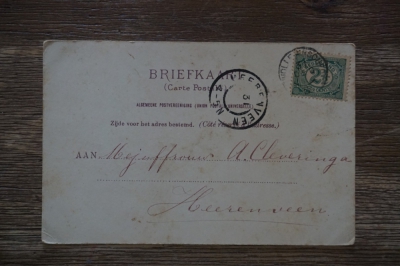 BRIEFKAART
(Carte Postale)
ALGEMEENE POSTVEREENIGING (UNION POSTALE UNIVERSELLE)
Zijde voor het adres bestemd. (Côté réservé à l'adresse.)
AAN Mejuffrouw A. Cleveringa
Heerenveen
HEERENVEEN
2½